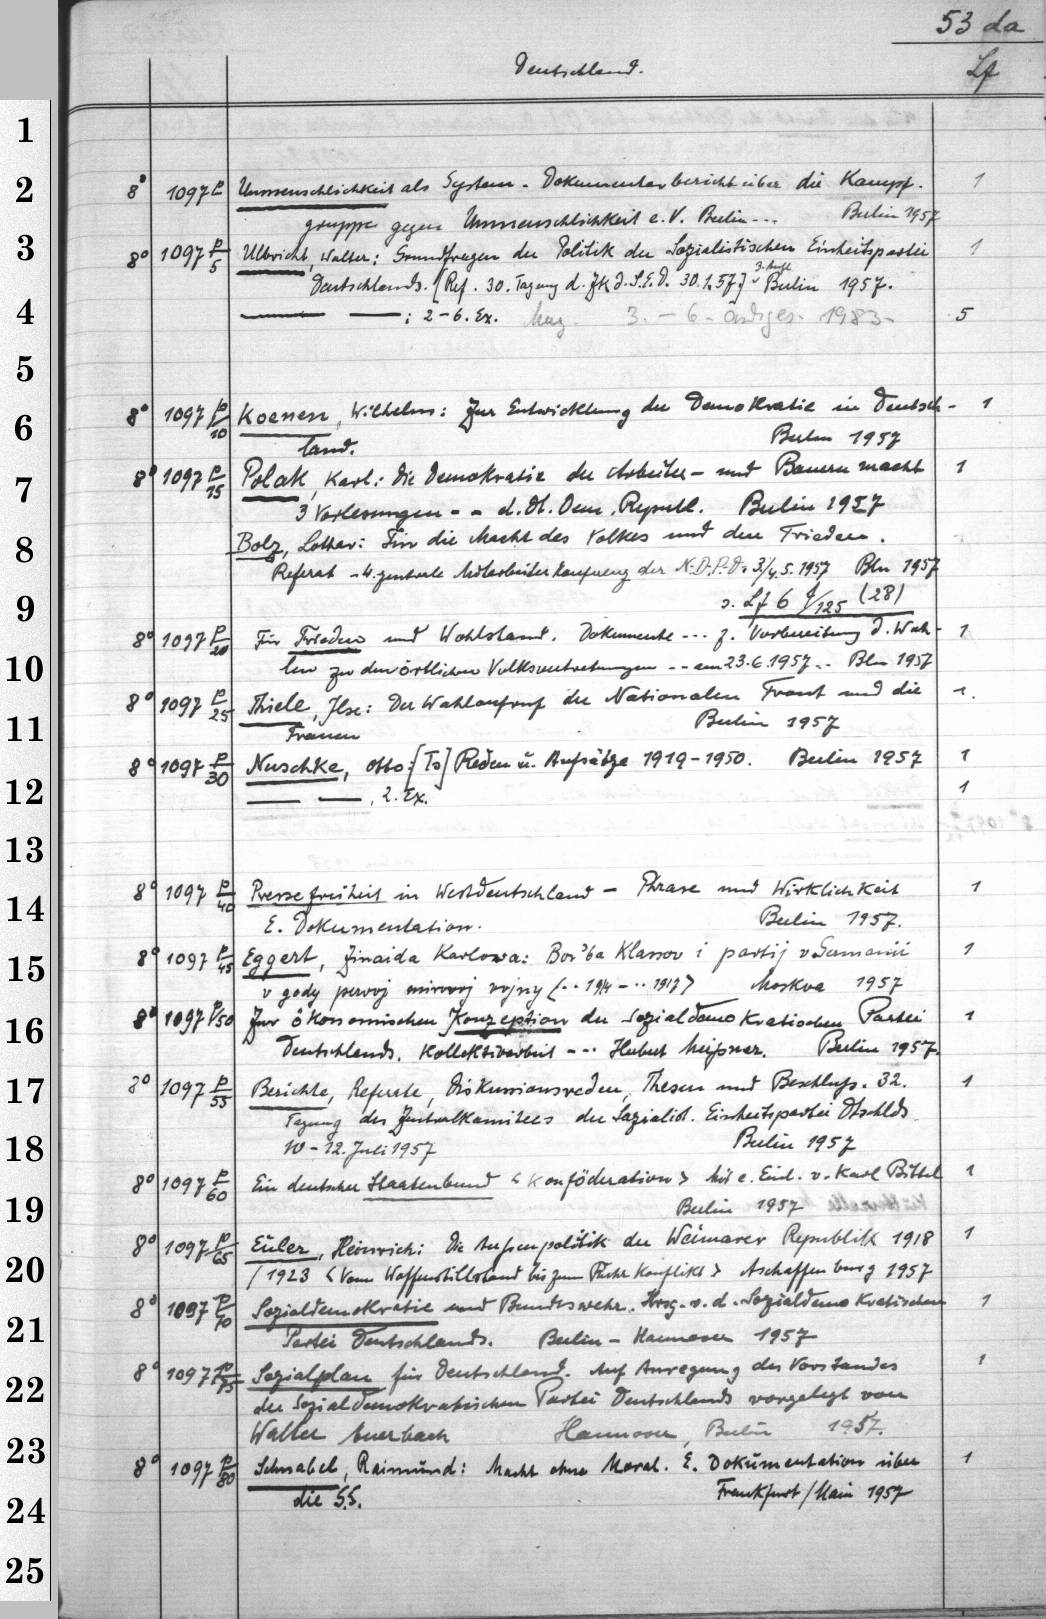 53 da
Deutschland. Lf
1
2 8° 1097 P Unmenschlichkeit als System. Dokumentarbericht über die Kampf- 1
gruppe gegen Unmenschlichkeit e. V. Berlin... Berlin 1957
3 8° 1097 P/5 Ulbricht, Walter: Grundfragen der Politik der Sozialistischen Einheitspartei 1
Deutschlands. [Ref. 30. Tagung d. ZK d. S.E.D. 30.1.57] 3. Aufl. Berlin 1957.
4 —— —— : 2-6. Ex. 3. - 6. ausges. 1983 5
5
6 8° 1097 P/10 Koenen, Wilhelm: Zur Entwicklung der Demokratie in Deutsch- 1
land. Berlin 1957
7 8° 1097 P/15 Polak, Karl: Die Demokratie der Arbeiter- und Bauernmacht 1
3 Vorlesungen - - d. Dt. Dem. Republ. Berlin 1957
8 Bolz, Lothar: Für die Macht des Volkes und den Frieden.
Referat - 4. zentrale Mitarbeiterkonferenz der N.D.P.D. 3./4.5.1957 Bln 1957
9 s. Lf 6 q/125 (28)
8° 1097 P/20 Für Frieden und Wohlstand. Dokumente --- z. Vorbereitung d. Wah- 1
10 len zu den örtlichen Volksvertretungen -- am 23.6.1957.. Bln 1957
8° 1097 P/25 Thiele, Ilse: Der Wahlaufruf der Nationalen Front und die 1.
11 Frauen Berlin 1957
8° 1097 P/30 Nuschke, Otto: [Ts] Reden u. Aufsätze 1919-1950. Berlin 1957 1
12 —— ——, 2. Ex. 1
13
8° 1097 P/40 Pressefreiheit in Westdeutschland - Phrase und Wirklichkeit 1
14 E. Dokumentation. Berlin 1957.
15 8° 1097 P/45 Eggert, Zinaida Karlovna: Bor'ba Klassov i partij v Germanii 1
v gody pervoj mirovoj vojny <.. 1914 - .. 1917> Moskva 1957
16 8° 1097 P/50 Zur ökonomischen Konzeption der Sozialdemokratischen Partei 1
Deutschlands. Kollektivarbeit --- Herbert Meißner. Berlin 1957.
17 8° 1097 P/55 Berichte, Referate, Diskussionsreden, Thesen und Beschluß. 32. 1
Tagung des Zentralkomitees der Sozialist. Einheitspartei Dtschlds
18 10-12. Juli 1957 Berlin 1957
8° 1097 P/60 Ein deutscher Staatenbund <Konföderation> Mit e. Einl. v. Karl Bittel 1
19 Berlin 1957
8° 1097 P/65 Euler, Heinrich: Die Außenpolitik der Weimarer Republik 1918 1
20 / 1923 <Vom Waffenstillstand bis zum Ruhrkonflikt> Aschaffenburg 1957
8° 1097 P/70 Sozialdemokratie und Bundeswehr. Hrsg. v. d. Sozialdemokratischen 1
21 Partei Deutschlands. Berlin - Hannover 1957
8° 1097 P/75 Sozialplan für Deutschland. Auf Anregung des Vorstandes 1
22 der Sozialdemokratischen Partei Deutschlands vorgelegt von
Walter Auerbach Hannover, Berlin 1957.
23 8° 1097 P/80 Schnabel, Raimund: Macht ohne Moral. E. Dokumentation über 1
24 die SS. Frankfurt/Main 1957
25